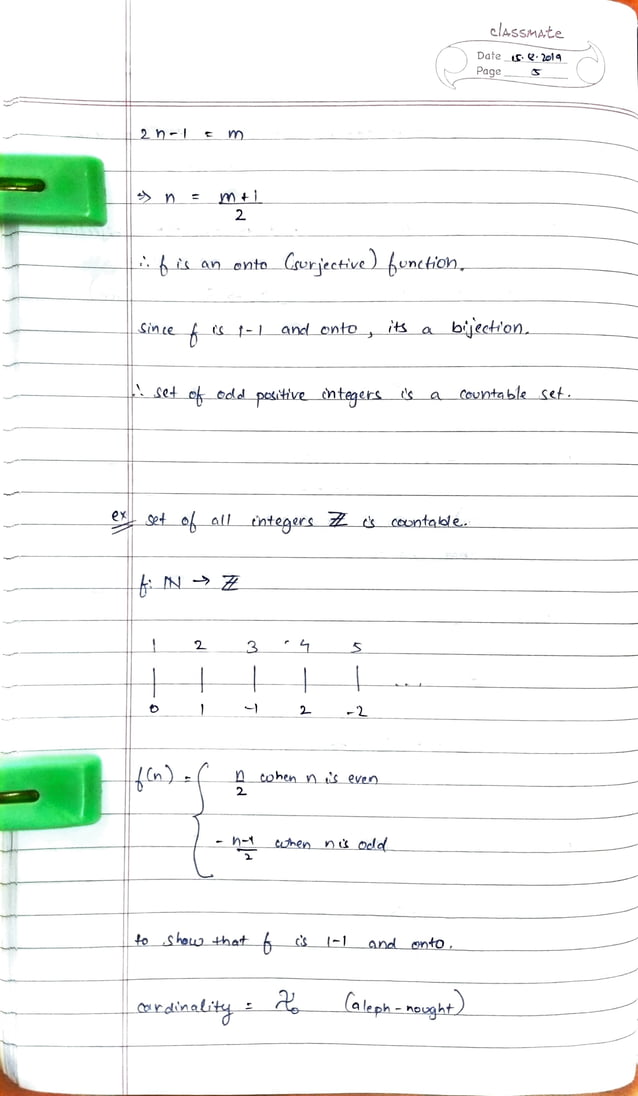 classmate
Date 15.8.2019
Page 5
2n-1 = m
⇒ n = (m+1)/2
∴ f is an onto (surjective) function.
since f is 1-1 and onto, its a bijection.
∴ set of odd positive integers is a countable set.
ex set of all integers ℤ is countable.
f: ℕ → ℤ
1 2 3 4 5
| | | | | ...
0 1 -1 2 -2
f(n) = { n/2 when n is even
- (n-1)/2 when n is odd
to show that f is 1-1 and onto.
cardinality = ℵ₀ (aleph-nought)